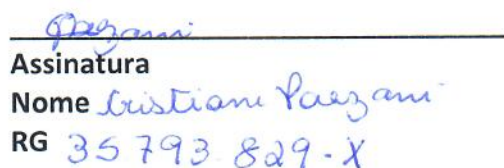 Paezani
Assinatura
Nome Cristiane Paezani
RG 35793829-X